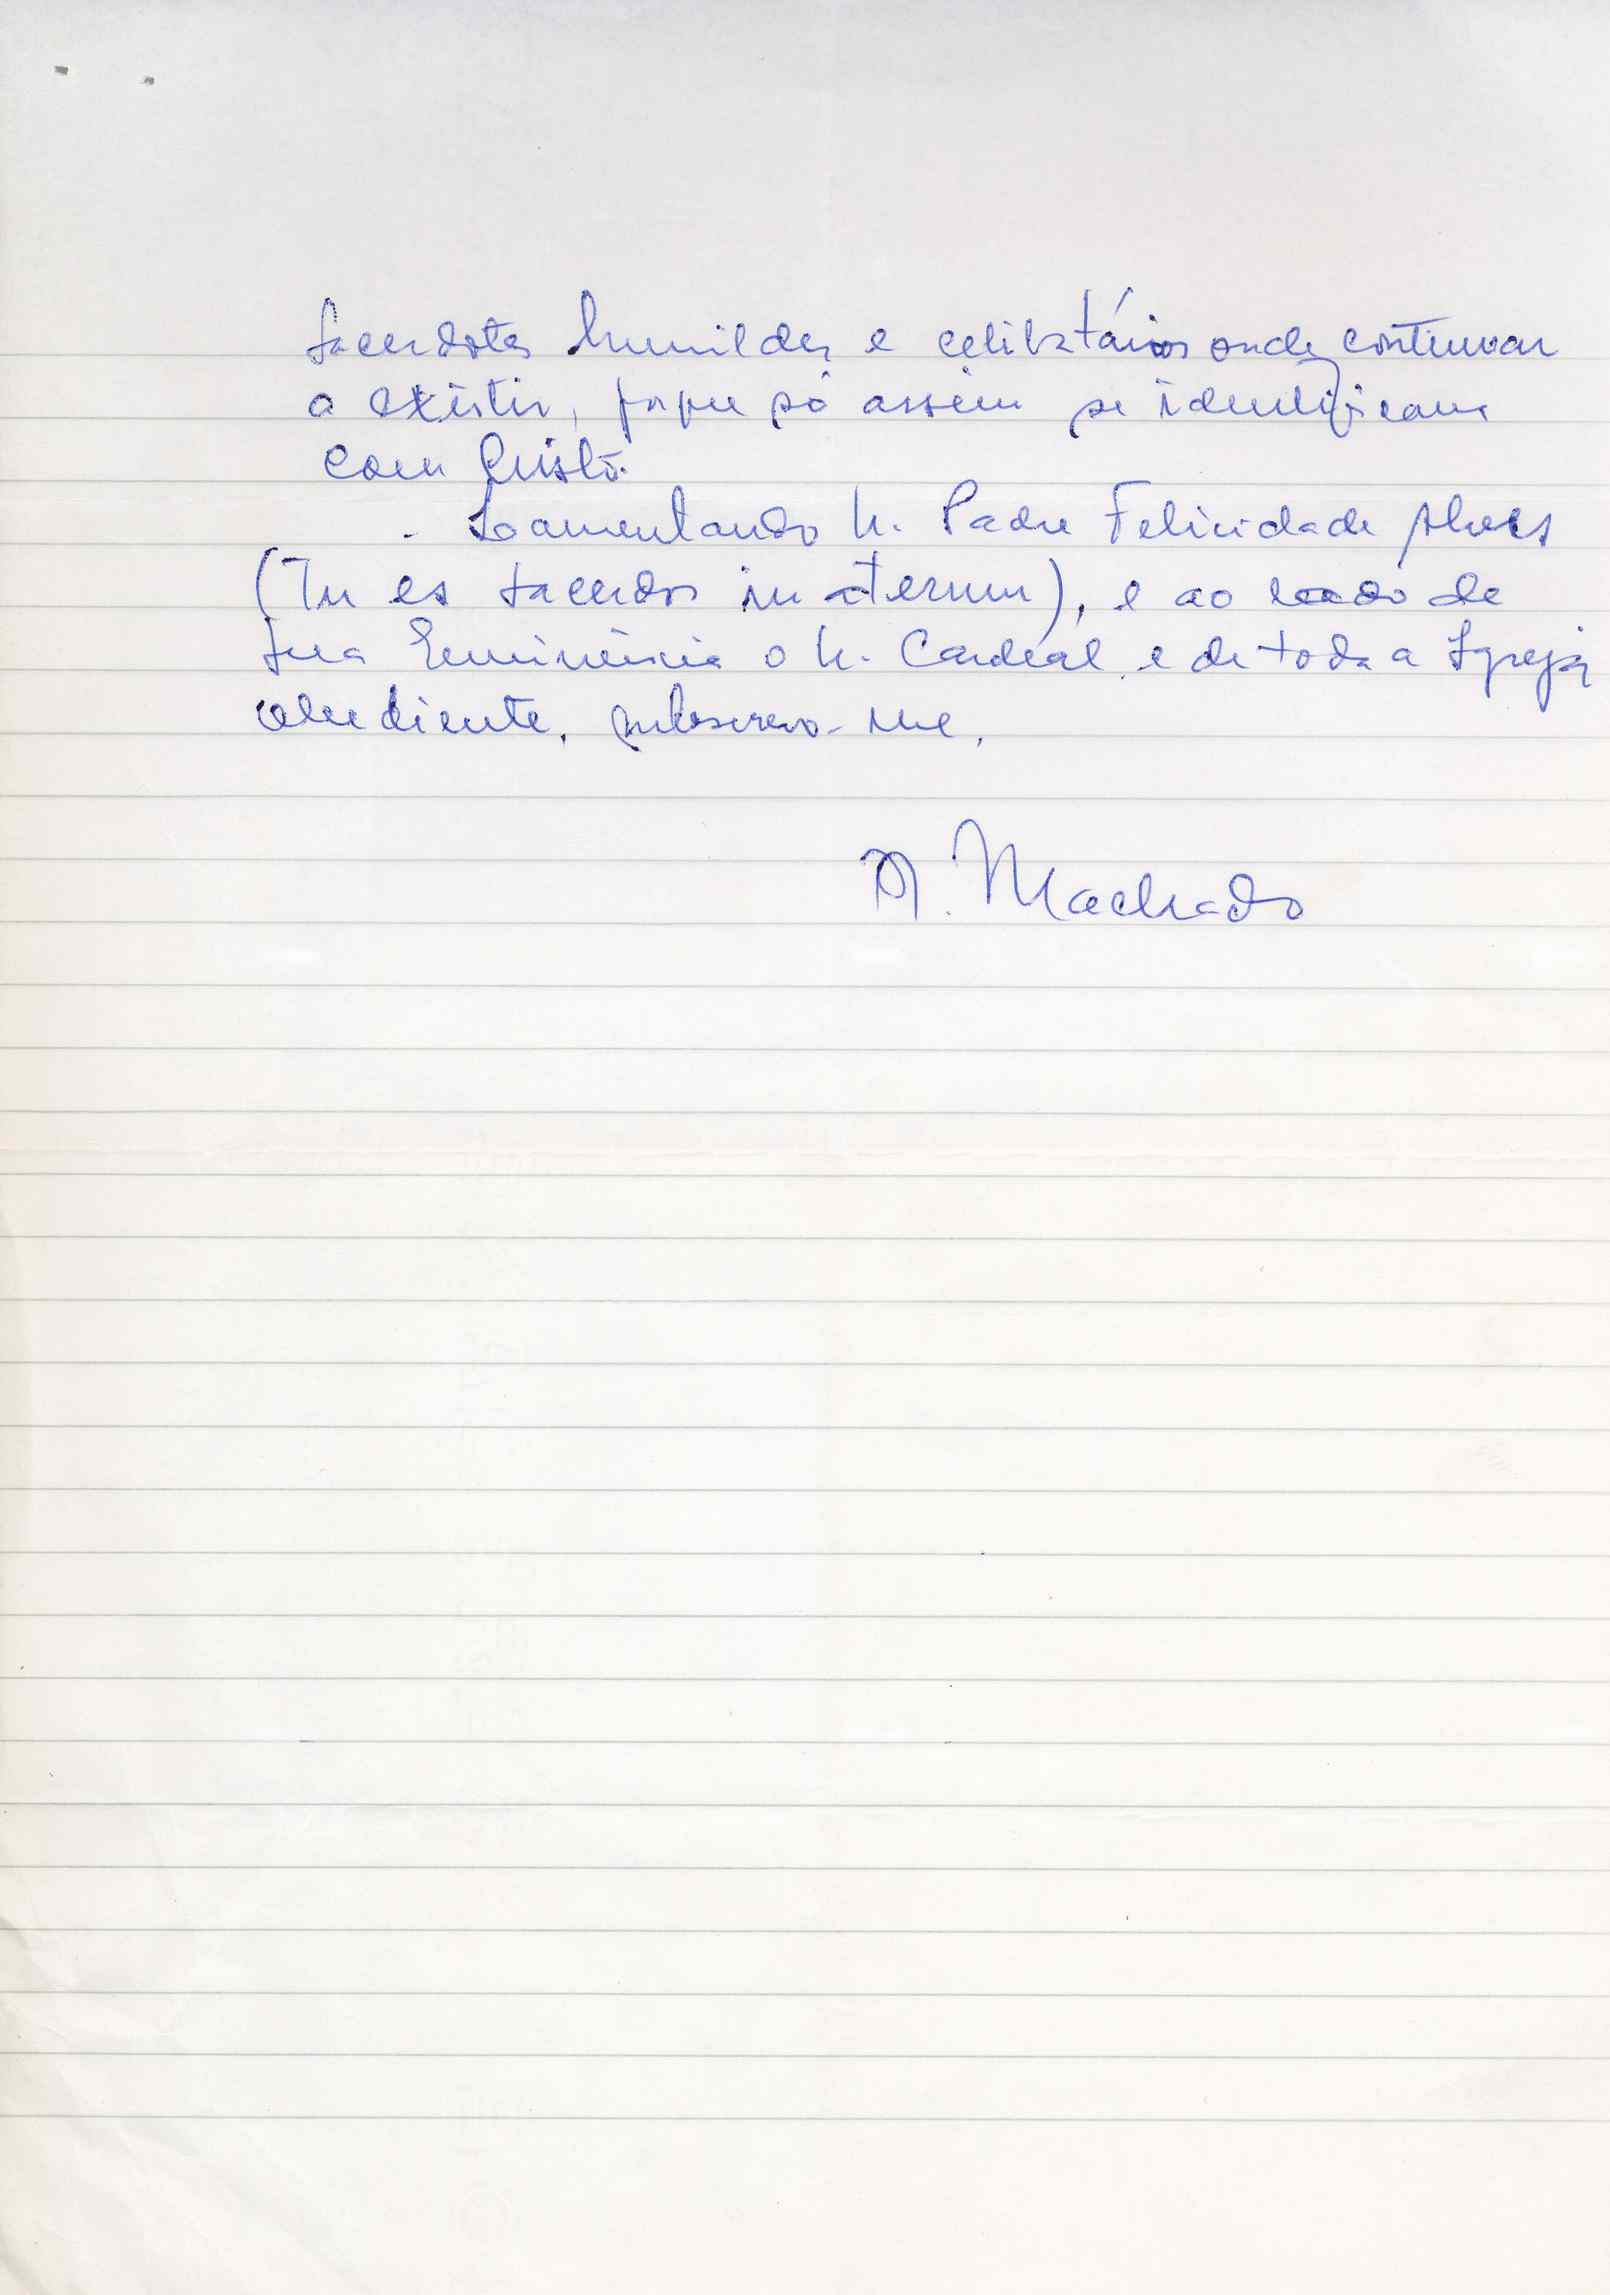 sacerdotes humildes e celibatários onde continuar
a existir, porque só assim se identificam
com Cristo.
- Lamentando Sr. Padre Felicidade Alves
(Tu es sacerdos in aeternum), e ao lado de
Sua Eminência o Sr. Cardeal e de toda a Igreja
obediente, subscrevo-me,
A. Machado